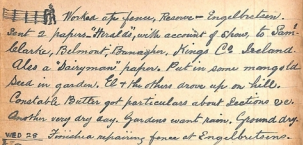 Worked at a fence, Reserve - Engelbretsen.
Sent 2 papers "Heralds", with account of show, to Sam
Clarke, Belmont, Banagher, Kings Co Ireland
Also a "Dairyman" paper. Put in some mangold
seed in garden. El & the others drove up on hill.
Constable Butter got particulars about Sections &c.
Another very dry day. Gardens want rain. Ground dry.
WED 28 Finished repairing fence at Engelbretsens.